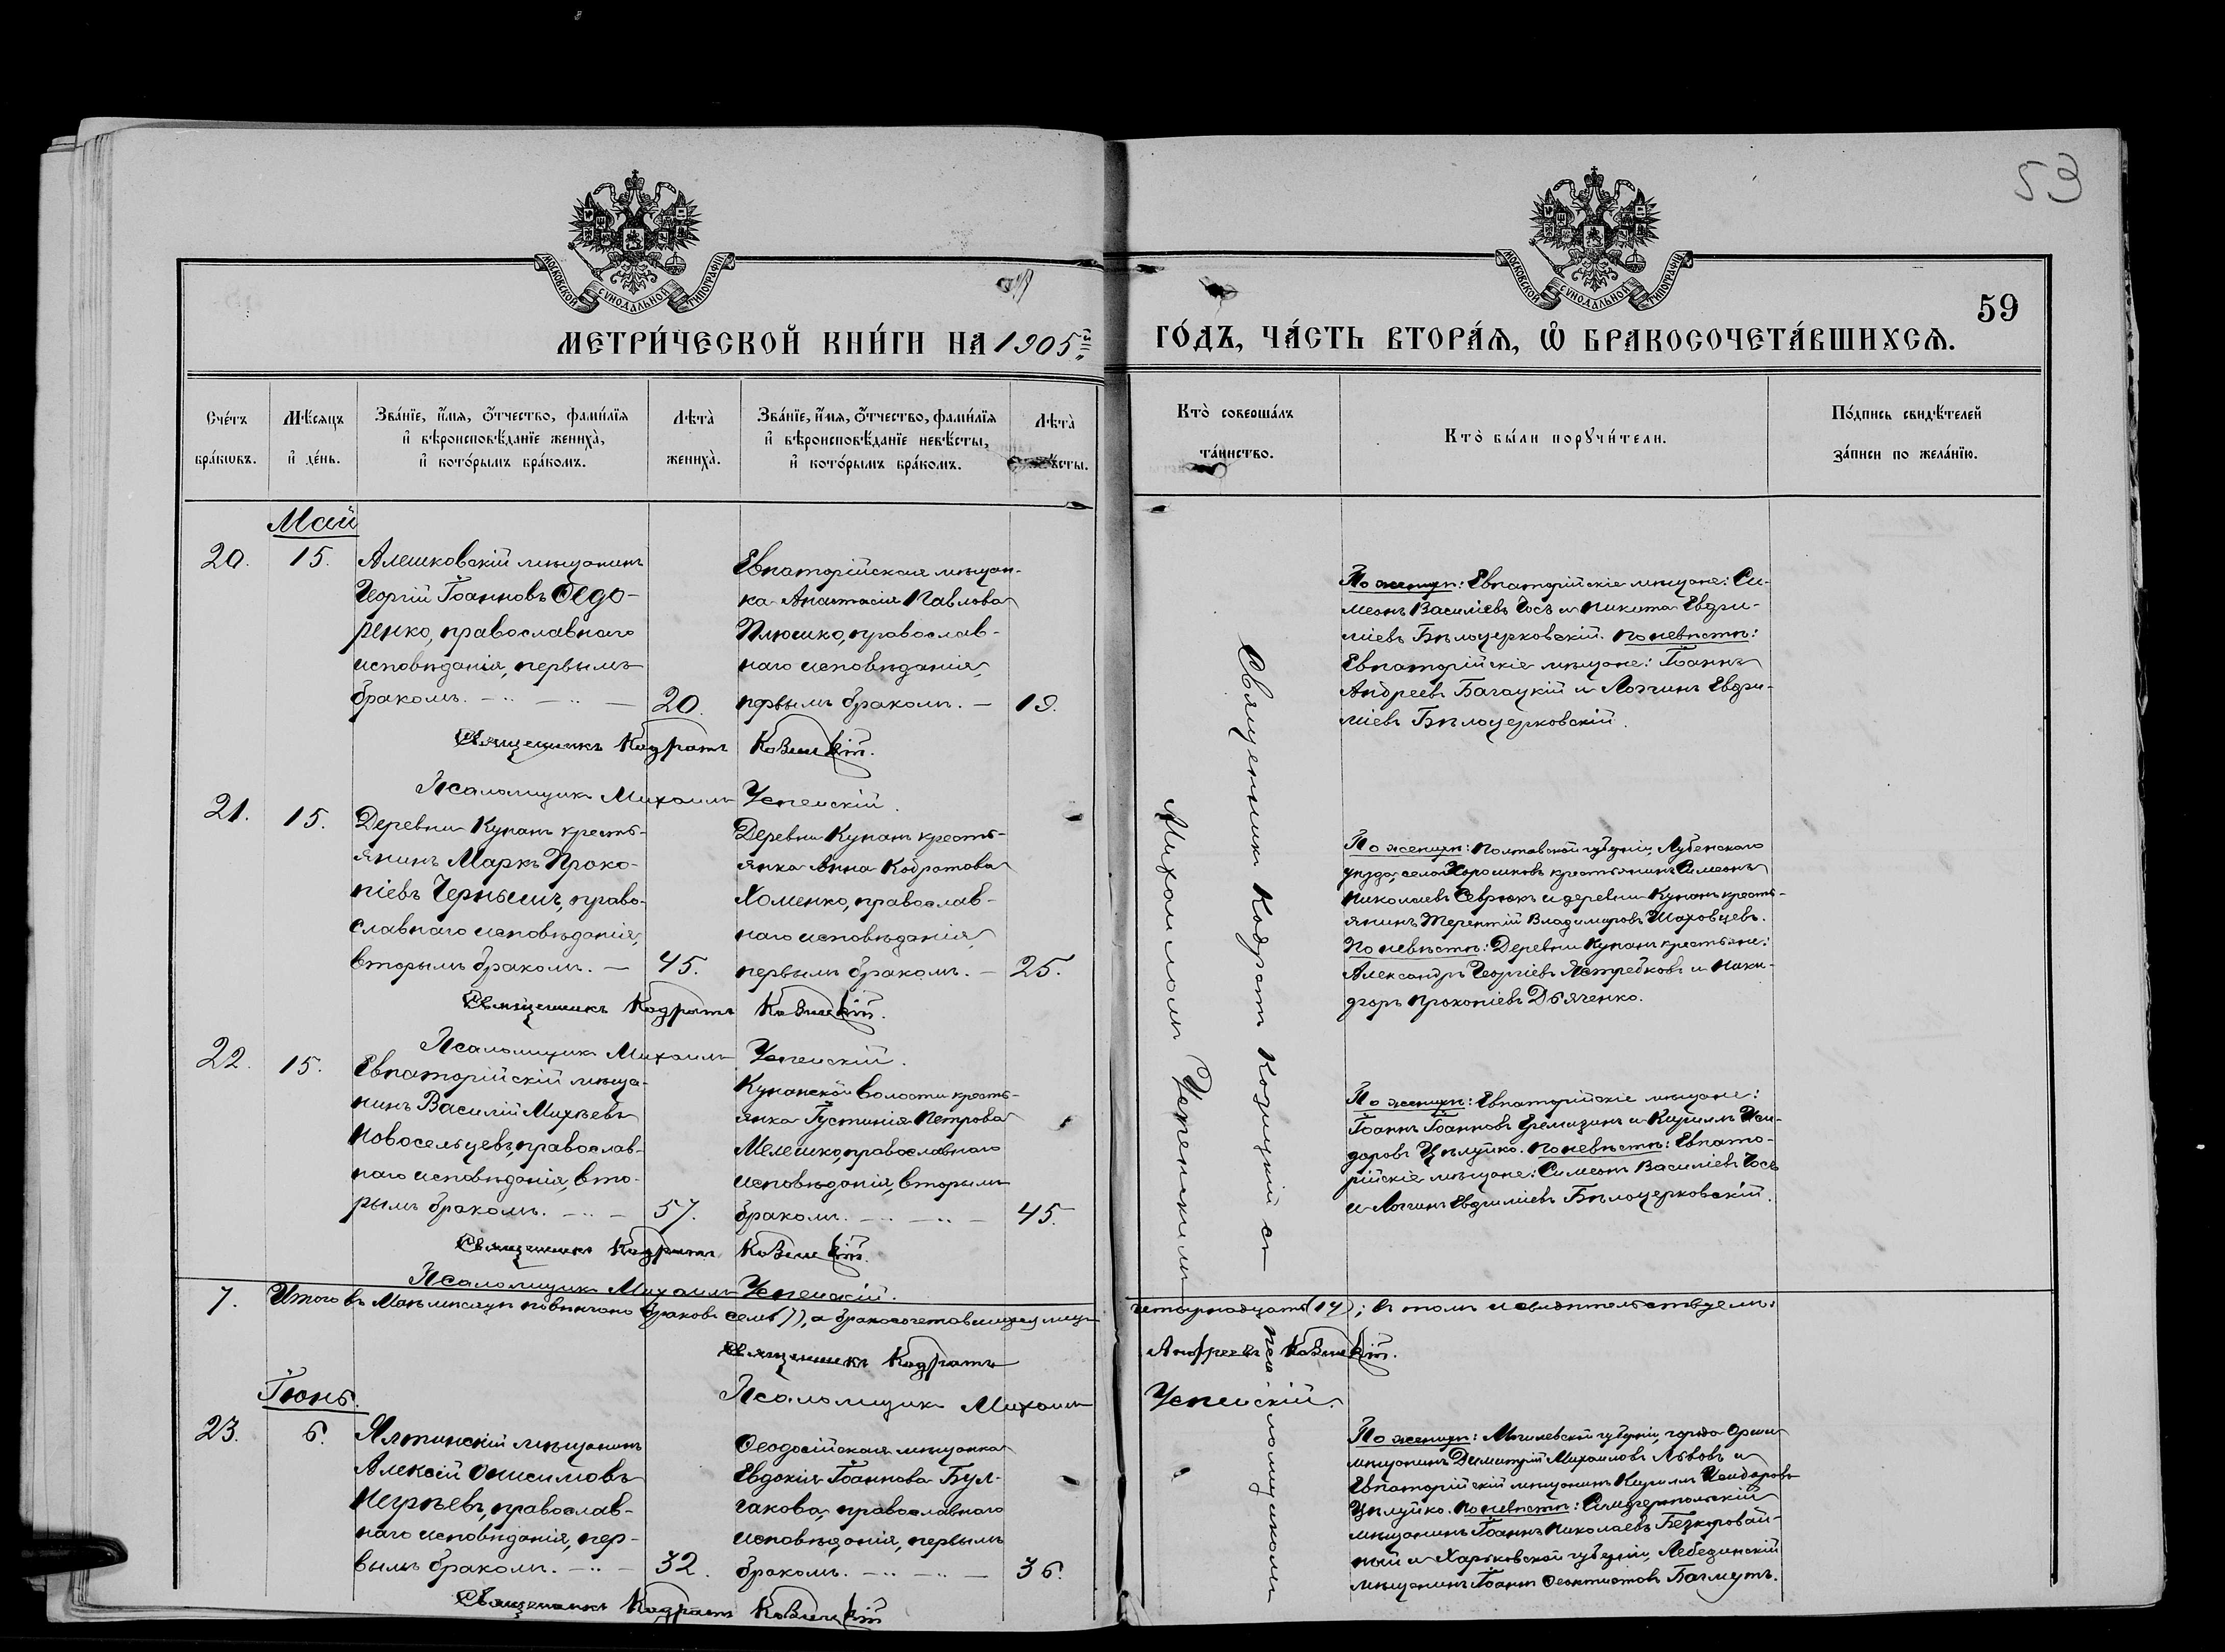 53
МОСКОВСКОЙ СѴНОДАЛЬНОЙ ТИПОГРАФІИ
МОСКОВСКОЙ СѴНОДАЛЬНОЙ ТИПОГРАФІИ
59
МЕТРИ́ЧЕСКОЙ КНИ́ГИ НА 1905й
ГО́ДЪ, ЧА́СТЬ ВТОРА́Ѧ, Ѽ БРАКОСОЧЕТА́ВШИХСѦ.
Сче́тъ бра́кѡвъ.
Мѣ́сяцъ и҆ де́нь.
Зва́нїе, и҆́мя, ѻ҆́тчество, фами́лїя
и҆ вѣроисповѣ́данїе жениха̀,
и҆ кото́рымъ бра́комъ.
Лѣта̀ жениха̀.
Зва́нїе, и҆́мя, ѻ҆́тчество, фами́лїя
и҆ вѣроисповѣ́данїе невѣ́сты,
и҆ кото́рымъ бра́комъ.
Лѣта̀
Кто̀ соверша́лъ
та́инство.
Кто̀ бы́ли порꙋчи́тели.
По́дпись свидѣ́телей
за́писи по жела́нїю.
Май
20. 15.
Алешковскій мѣщанинъ
Георгій Іоанновъ Ѳедо-
ренко, православнаго
исповѣданія, первымъ
бракомъ.
20.
Евпаторійская мѣщан-
ка Анастасія Павлова
Плюшко, православ-
наго исповѣданія,
первымъ бракомъ.
19.
По женихѣ: Евпаторійскіе мѣщане: Си-
меонъ Василіевъ Гось и Никита Евфи-
міевъ Бѣлоцерковскій. По невѣстѣ:
Евпаторійскіе мѣщане: Іоаннъ
Андреевъ Багацкій и Логгинъ Евфи-
міевъ Бѣлоцерковскій.
Священникъ Кодратъ Козицкій.
Псаломщикъ Михаилъ Успенскій.
21. 15.
Деревни Кунанъ кресть-
янинъ Маркъ Проко-
піевъ Чернышъ, право-
славнаго исповѣданія,
вторымъ бракомъ.
45.
Деревни Кунанъ кресть-
янка Анна Кодратова
Хоменко, православ-
наго исповѣданія,
первымъ бракомъ.
25.
По женихѣ: Полтавской губерніи, Лубенскаго
уѣзда, села Хорошковъ крестьянинъ Симеонъ
Николаевъ Севрюкъ и деревни Кунанъ кресть-
янинъ Терентій Владиміровъ Шаховцевъ.
По невѣстѣ: Деревни Кунанъ крестьяне:
Александръ Георгіевъ Ястребковъ и Ники-
форъ Прокопіевъ Дьяченко.
Священникъ Кодратъ Козицкій.
Псаломщикъ Михаилъ Успенскій.
22. 15.
Евпаторійскій мѣща-
нинъ Василій Михѣевъ
Новосельцевъ, православ-
наго исповѣданія, вто-
рымъ бракомъ.
57.
Кунанской волости кресть-
янка Іустинія Петрова
Мелешко, православнаго
исповѣданія, вторымъ
бракомъ.
45.
По женихѣ: Евпаторійскіе мѣщане:
Іоаннъ Іоанновъ Гремизинъ и Кириллъ Иси-
доровъ Цѣлуйко. По невѣстѣ: Евпато-
рійскіе мѣщане: Симеонъ Василіевъ Гось
и Логгинъ Евфиміевъ Бѣлоцерковскій.
Священникъ Кодратъ Козицкій.
Псаломщикъ Михаилъ Успенскій.
7. Итого въ Маѣ мѣсяцѣ повѣнчано браковъ семь (7), а бракосочетавшихся лицъ
четырнадцать (14); въ томъ и свидѣтельствуемъ:
Священникъ Кодратъ Андреевъ Козицкій.
Псаломщикъ Михаилъ Успенскій.
Священникъ Кодратъ Козицкій съ псаломщикомъ
Михаиломъ Успенскимъ
Іюнь.
23. 6.
Ялтинскій мѣщанинъ
Алексій Онисимовъ
Негрѣевъ, православ-
наго исповѣданія, пер-
вымъ бракомъ.
32.
Ѳеодосійская мѣщанка
Евдокія Іоаннова Бул-
гакова, православнаго
исповѣданія, первымъ
бракомъ.
36.
По женихѣ: Могилевской губерніи, города Орши
мѣщанинъ Димитрій Михаиловъ Львовъ и
Евпаторійскій мѣщанинъ Кириллъ Исидоровъ
Цѣлуйко. По невѣстѣ: Симферопольскій
мѣщанинъ Іоаннъ Николаевъ Безкоровай-
ный и Харьковской губерніи, Лебединскій
мѣщанинъ Іоаннъ Ѳеоктистовъ Багмутъ.
Священникъ Кодратъ Козицкій